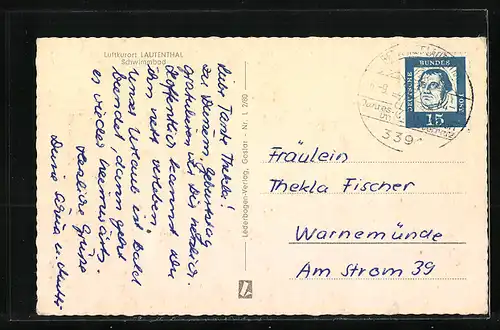 Luftkurort LAUTENTHAL
Schwimmbad
Liebe Tante Thekla!
Zu Deinem Geburtstag
gratulieren wir Dir herzlich.
Hoffentlich kannst du
ihn nett verleben!
Unser Urlaub ist bald
beendet, dann geht
es wieder heimwärts.
Herzliche Grüße
Deine
u.
Lederbogen-Verlag, Goslar - Nr. L 2/60
DEUTSCHE
BUNDES
POST
15
339
Fräulein
Thekla Fischer
Warnemünde
Am Strom 39